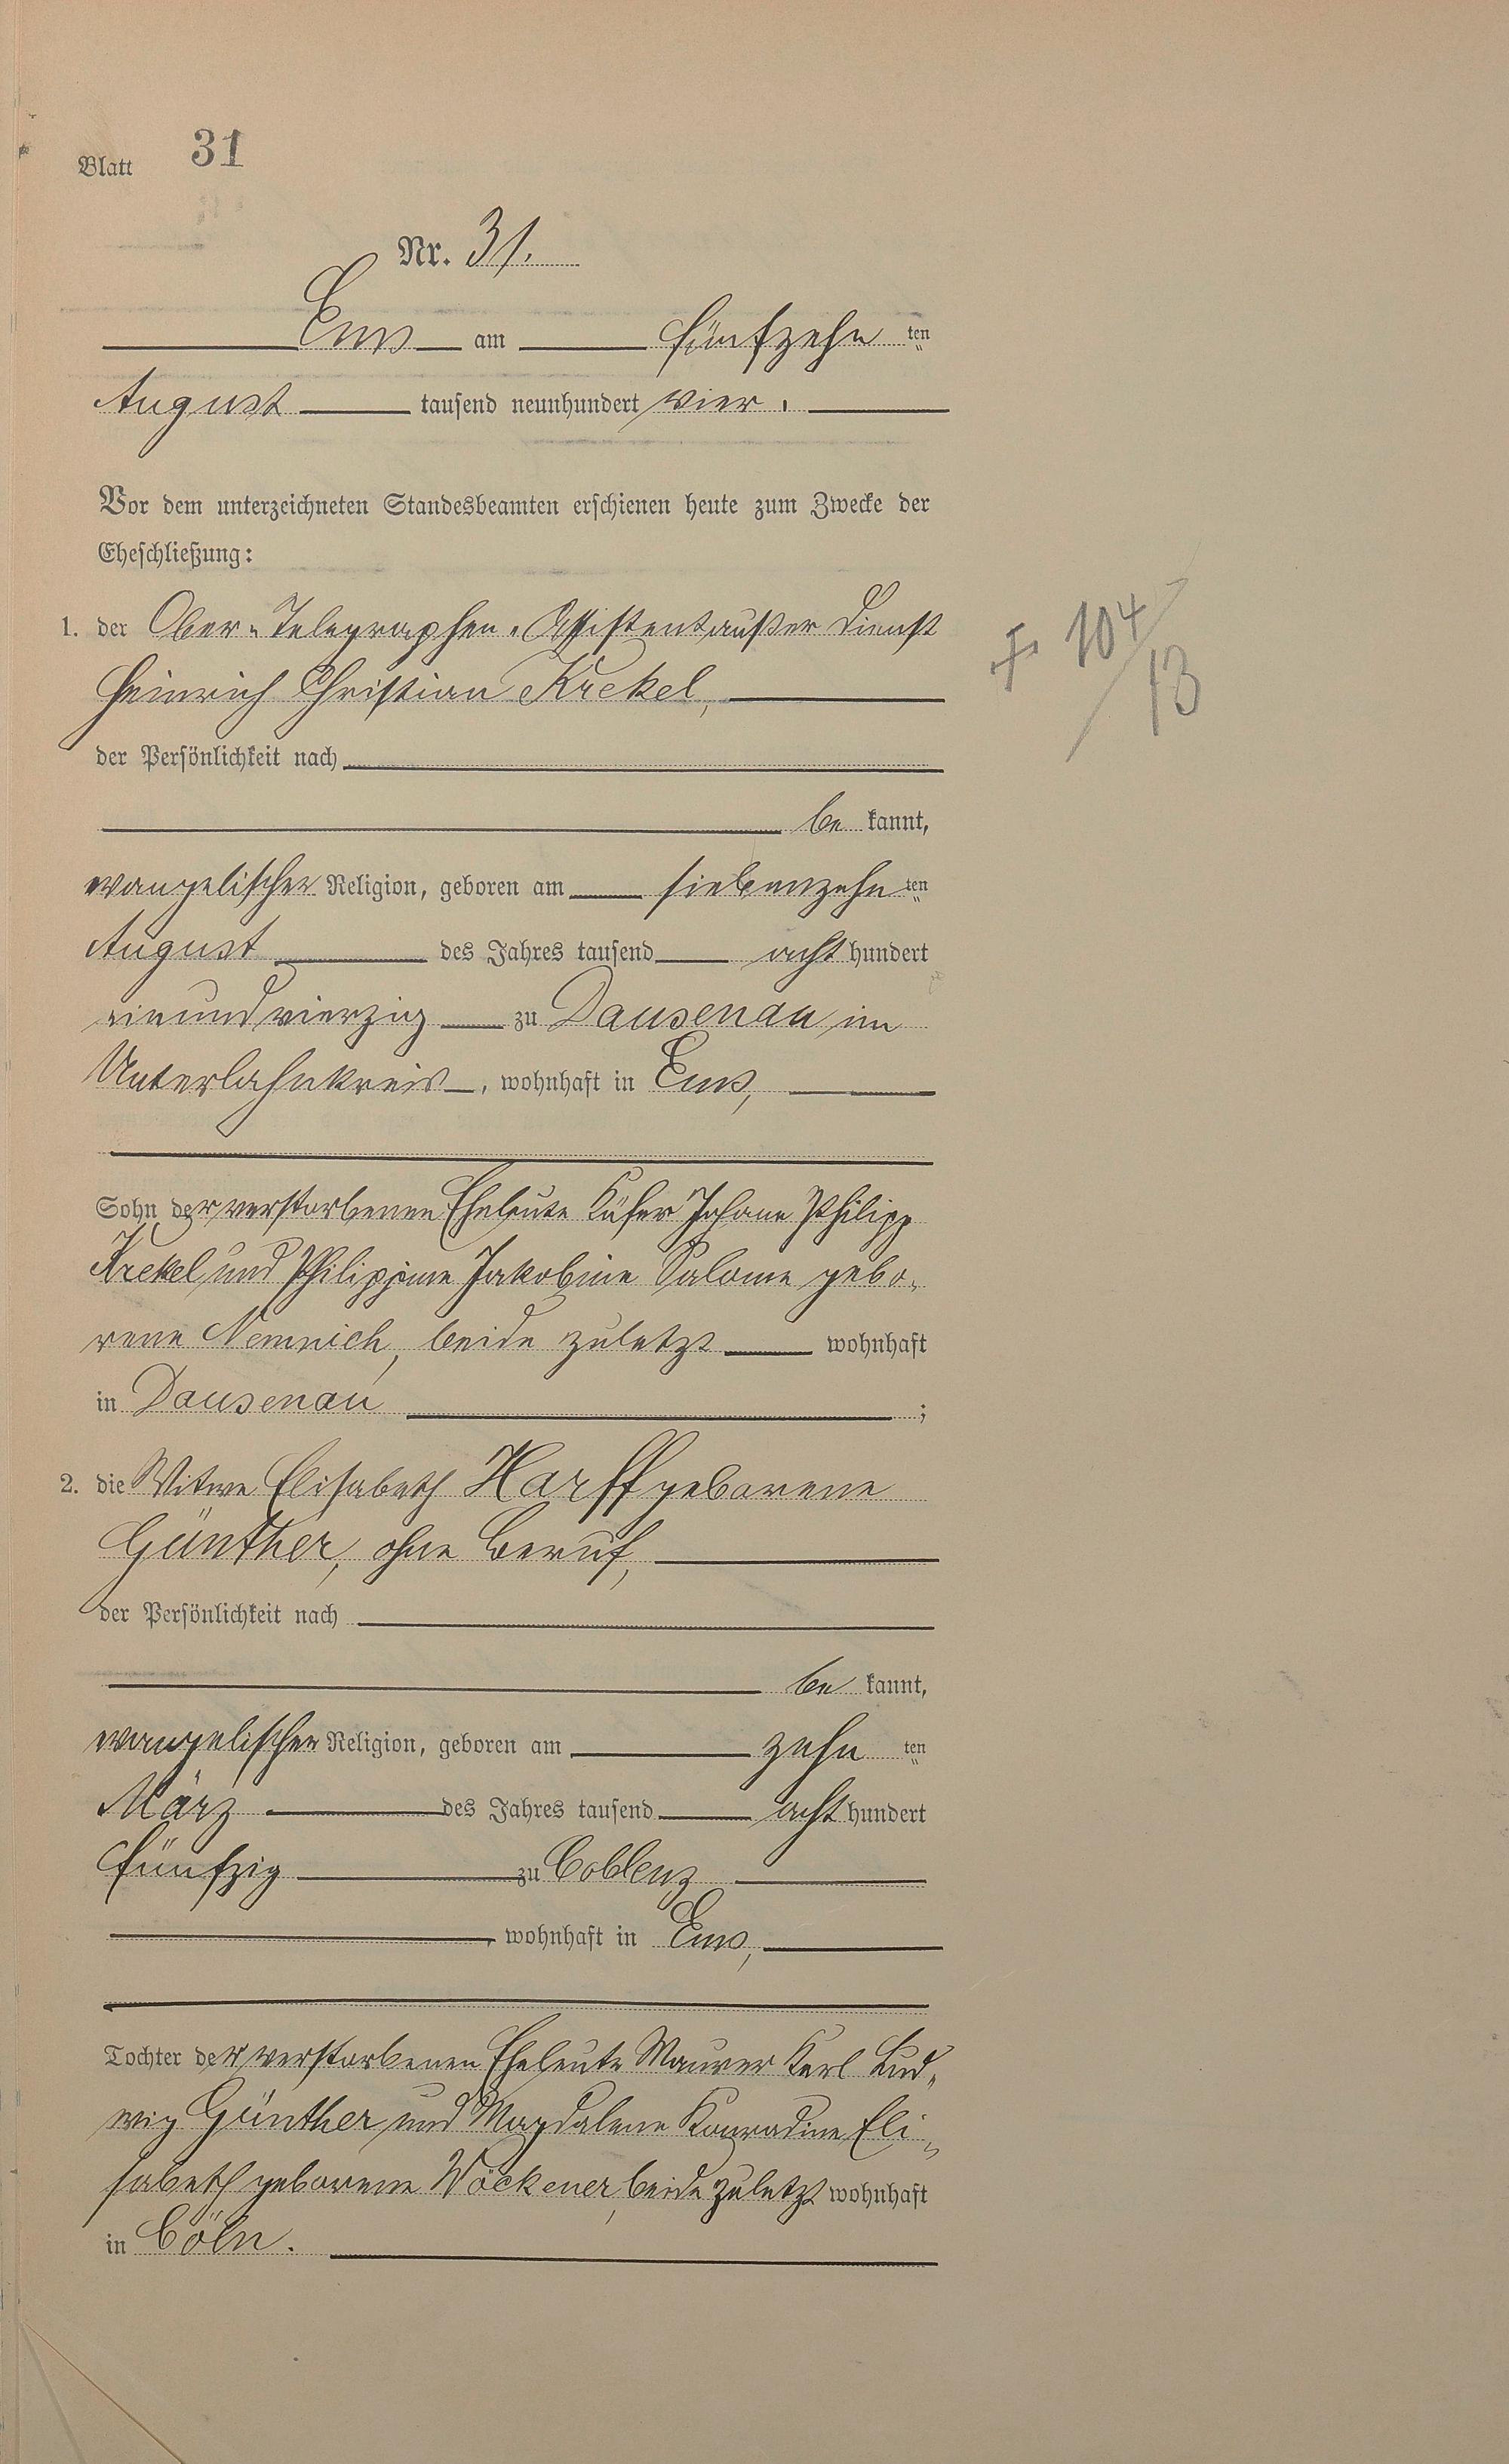 Blatt 31
Nr. 31.
Ems am fünfzehn ten
August tausend neunhundert vier.
Vor dem unterzeichneten Standesbeamten erschienen heute zum Zwecke der
Eheschließung:
1. der Ober-Telegraphen-Assistent außer Dienst
Heinrich Christian Krekel,
der Persönlichkeit nach
be kannt,
evangelischer Religion, geboren am siebenzehn ten
August des Jahres tausend acht hundert
einundvierzig zu Dausenau im
Unterlahnkreis, wohnhaft in Ems,
Sohn der verstorbenen Eheleute Küfer Johann Philipp
Krekel und Philippine Jakobine Salome gebo-
rene Nemnich, beide zuletzt wohnhaft
in Dausenau ;
2. die Witwe Elisabeth Harff geborene
Günther, ohne Beruf,
der Persönlichkeit nach
be kannt,
evangelischer Religion, geboren am zehn ten
März des Jahres tausend acht hundert
fünfzig zu Coblenz
, wohnhaft in Ems,
Tochter der verstorbenen Eheleute Maurer Karl Lud-
wig Günther und Magdalene Konradine Eli-
sabeth geborene Wöckener, beide zuletzt wohnhaft
in Cöln.
104/13